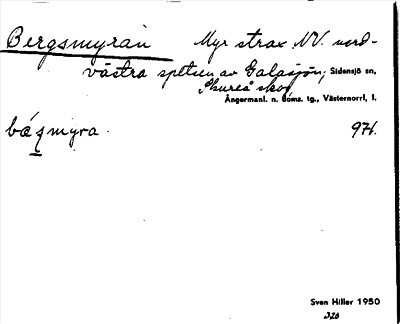 Bergsmyran Myr strax NV. nord-
västra spetsen av Galasjön, Sidensjö sn,
skog
Ångermanl. n. doms. tg., Västernorrl, l.
bázmyra 974.
Sven Hiller 1950
326